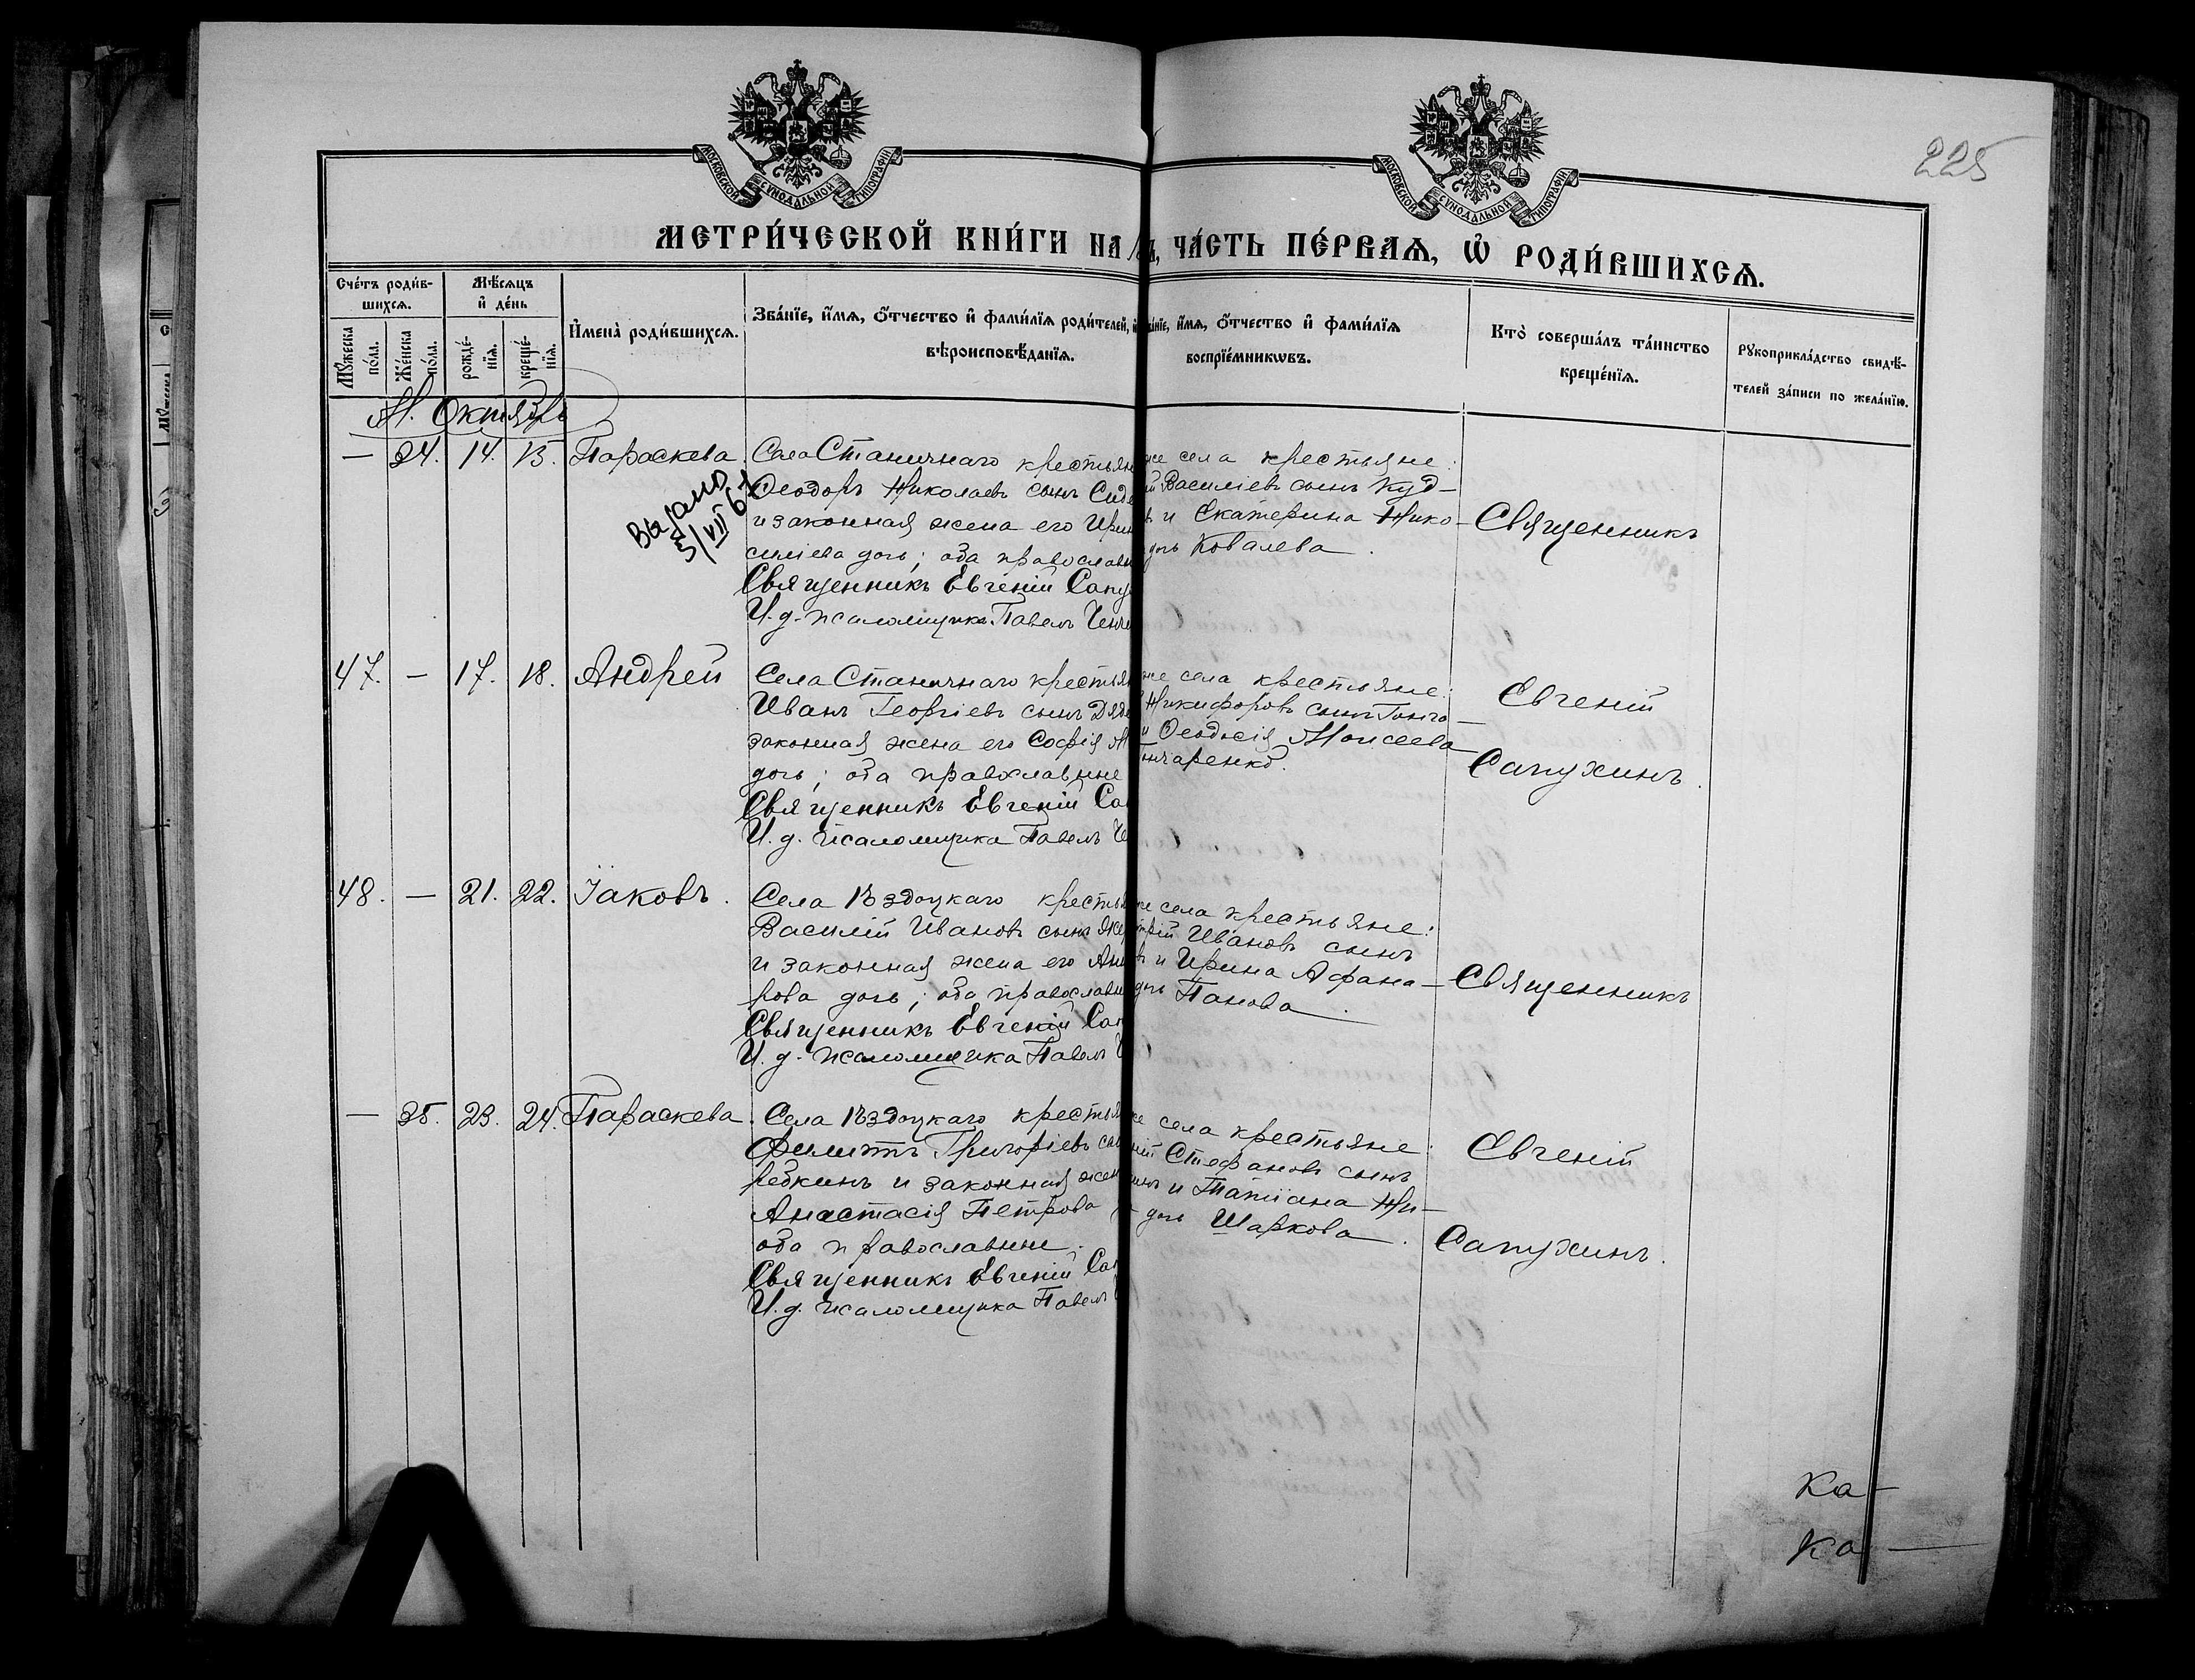 225
МОСКОВСКОЙ СУНОДАЛЬНОЙ ТИПОГРАФІИ
МОСКОВСКОЙ СУНОДАЛЬНОЙ ТИПОГРАФІИ
МЕТРИ́ЧЕСКОЙ КНИ́ГИ НА ЧА́СТЬ ПЕ́РВАѦ, Ѡ҆ РОДИ́ВШИХСѦ.
Сче́тъ роди́в-
шихсѧ.
Мꙋ́жеска
по́ла.
Же́нска
по́ла.
Мѣ́сѧцъ
и҆ де́нь
рожде́-
нїѧ.
креще́-
нїѧ.
И҆мена̀ роди́вшихсѧ.
Зва́нїе, и҆́мѧ, ѻ҆́тчество и҆ фами́лїѧ роди́телей,
вѣроисповѣ́данїѧ.
и҆́мѧ, ѻ҆́тчество и҆ фами́лїѧ
воспрїе́мникѡвъ.
Кто̀ соверша́лъ та́инство
креще́нїѧ.
Рꙋкоприкла́дство свидѣ́-
телей за́писи по жела́нїю.
М. Октябрь
— 14. 15. Параскева.
Выдано
5/VII
Села Станичнаго крестьян
Ѳеодоръ Николаевъ сынъ
и законная жена его Ири
силіева дочь; оба православ
Священникъ Евгеній Сапу
И. д. псаломщика Павелъ
же села крестьяне:
Василіевъ сынъ Куд-
и Екатерина Нико-
дочь Ковалева.
Священникъ
47. — 17. 18. Андрей
Села Станичнаго крестья
Иванъ Георгіевъ сынъ
законная жена его Софія
дочь; оба православные
Священникъ Евгеній Са
И. д. псаломщика Павелъ
же села крестьяне:
Никифоровъ сынъ Гонча-
и Ѳеодосія Моисеева
нчаренко.
Евгеній
Сапухинъ.
48. — 21. 22. Іаковъ.
Села Ѣздоцкаго кресть
Василій Ивановъ сынъ
и законная жена его
рова дочь; оба православн
Священникъ Евгеній Сап
И. д. псаломщика Павелъ
же села крестьяне:
Ивановъ сынъ
и Ирина Афана-
дочь Панова.
Священникъ
— 35. 23. 24. Параскева.
Села Ѣздоцкаго крестья
Филиппъ Григоріевъ
редкинъ и законная жен
Анастасія Петрова
оба православные.
Священникъ Евгеній Са
И. д. псаломщика Павелъ
же села крестьяне:
Стефановъ сынъ
и Татіана Ни-
дочь Шаркова.
Евгеній
Сапухинъ.
Ка-
Ка-